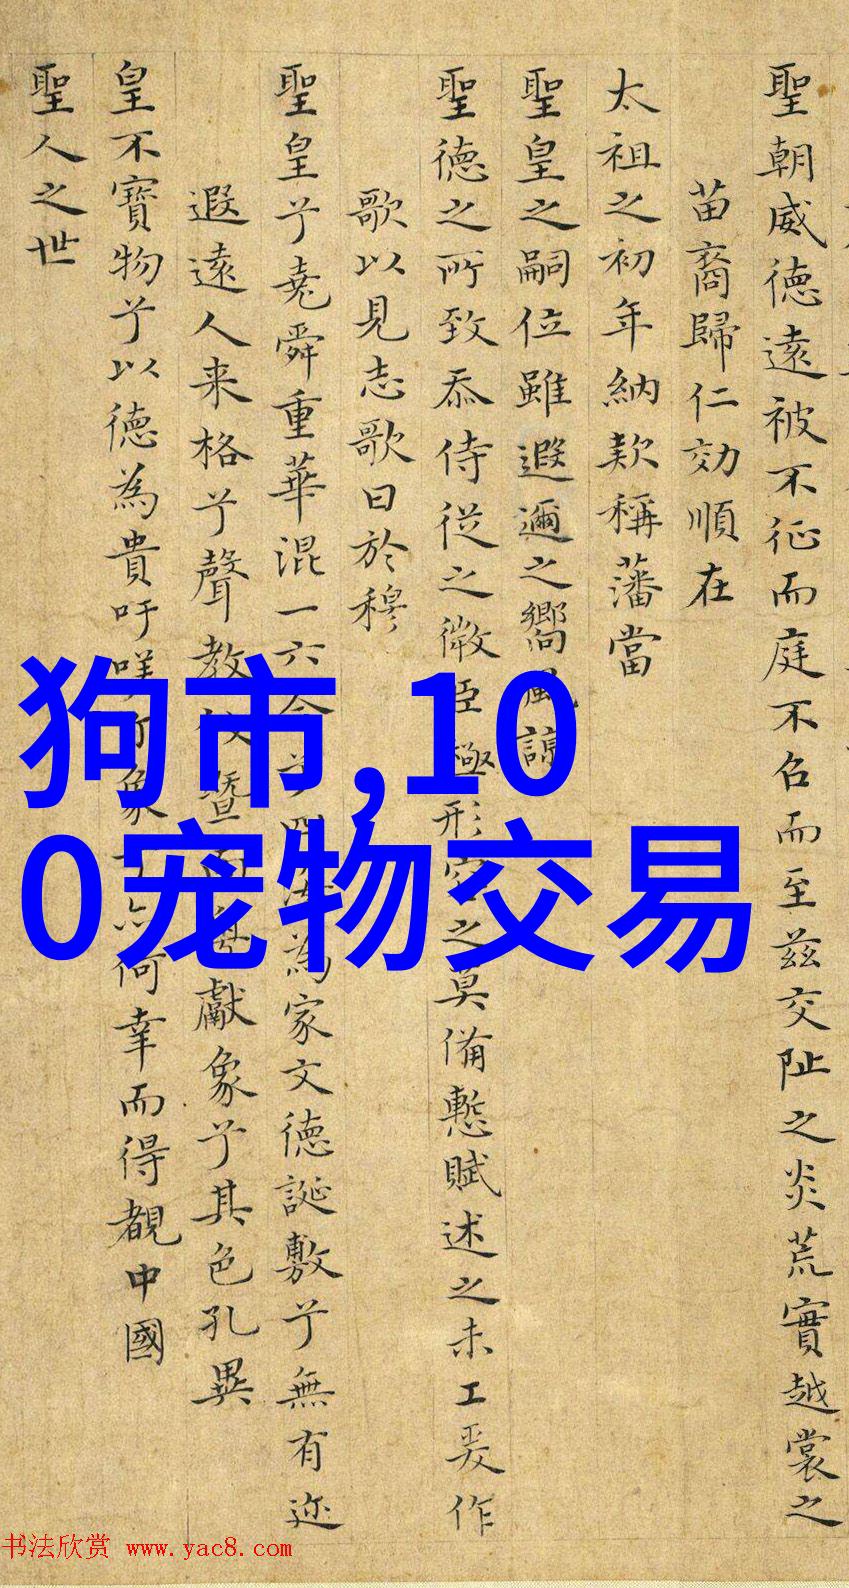 聖朝威德遠被不征而庭不召而至茲交阯之炎荒實越裳之
苗裔歸仁効順在
太祖之初年納款稱藩當
聖皇之嗣位雖遐邇之嚮風諒
聖德之所致忝侍從之微臣極形容之莫備慙賦述之未工爰作
歌以見志歌曰於穆
聖皇兮堯舜重華混一六合兮四海為家文德誕敷兮無有迩
遐遠人来格兮聲教攸暨南粵獻象兮其色孔異
皇不寶物兮以德為貴吁嗟
象兮
何幸而得覩中國
聖人之世
狗市,10
0宠物交易
书法欣赏 www.yac8.com